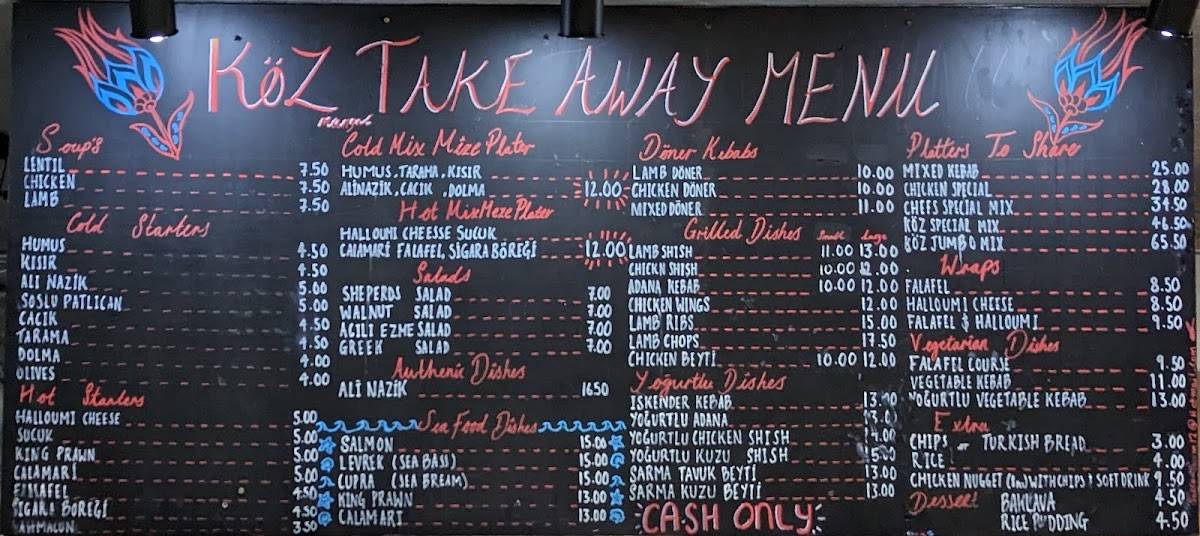 KÖZ TAKE AWAY MENU
Soup's
LENTIL 7.50
CHICKEN 7.50
LAMB 7.50
Cold Starters
HUMUS 4.50
KISIR 4.50
ALI NAZİK 5.00
SOSLU PATLICAN 5.00
CACIK 4.50
TARAMA 4.50
DOLMA 4.00
OLIVES 4.00
Hot Starters
HALLOUMI CHEESE 5.00
SUCUK 5.00
KING PRAWN 5.00
CALAMARİ 5.00
FALLAFEL 4.50
SIGARA BÖREĞİ 4.50
LAHMACUN 3.50
Cold Mix Meze Plater
HUMUS, TARAMA, KISIR
ALINAZİK, CACIK, DOLMA 12.00
Hot Mix Meze Plater
HALLOUMI CHEESSE SUCUK
CALAMARI FALAFEL, SİGARA BÖREĞİ 12.00
Salads
SHEPERDS SALAD 7.00
WALNUT SALAD 7.00
ACILI EZME SALAD 7.00
GREEK SALAD 7.00
Authenic Dishes
ALİ NAZİK 16.50
Sea Food Dishes
SALMON 15.00
LEVREK (SEA BASS) 15.00
CUPRA (SEA BREAM) 15.00
KING PRAWN 13.00
CALAMARI 13.00
Döner Kebabs
LAMB DÖNER 10.00
CHICKEN DÖNER 10.00
MIXED DÖNER 11.00
Grilled Dishes Small Large
LAMB SHISH 11.00 13.00
CHICKN SHISH 10.00 12.00
ADANA KEBAB 10.00 12.00
CHICKEN WINGS 12.00
LAMB RIBS 15.00
LAMB CHOPS 17.50
CHICKEN BEYTİ 10.00 12.00
Yoğurtlu Dishes
ISKENDER KEBAB 13.00
YOĞURTLU ADANA 13.00
YOĞURTLU CHICKEN SHISH 14.00
YOĞURTLU KUZU SHISH 15.00
SARMA TAVUK BEYTİ 13.00
SARMA KUZU BEYTİ 13.00
CASH ONLY
Platters To Share
MIXED KEBAB 25.00
CHICKEN SPECIAL 28.00
CHEFS SPECIAL MIX 34.50
KÖZ SPECIAL MIX 46.50
KÖZ JUMBO MIX 65.50
Wraps
FALAFEL 8.50
HALLOUMI CHEESE 8.50
FALAFEL & HALLOUMI 9.50
Vegetarian Dishes
FALAFEL COURSE 9.50
VEGETABLE KEBAB 11.00
YOĞURTLU VEGETABLE KEBAB 13.00
Extra
CHIPS or TURKISH BREAD 3.00
RICE 4.00
CHICKEN NUGGET WITH CHIPS SOFT DRINK 9.50
Dessert BAKLAVA 4.50
RICE PUDDING 4.50